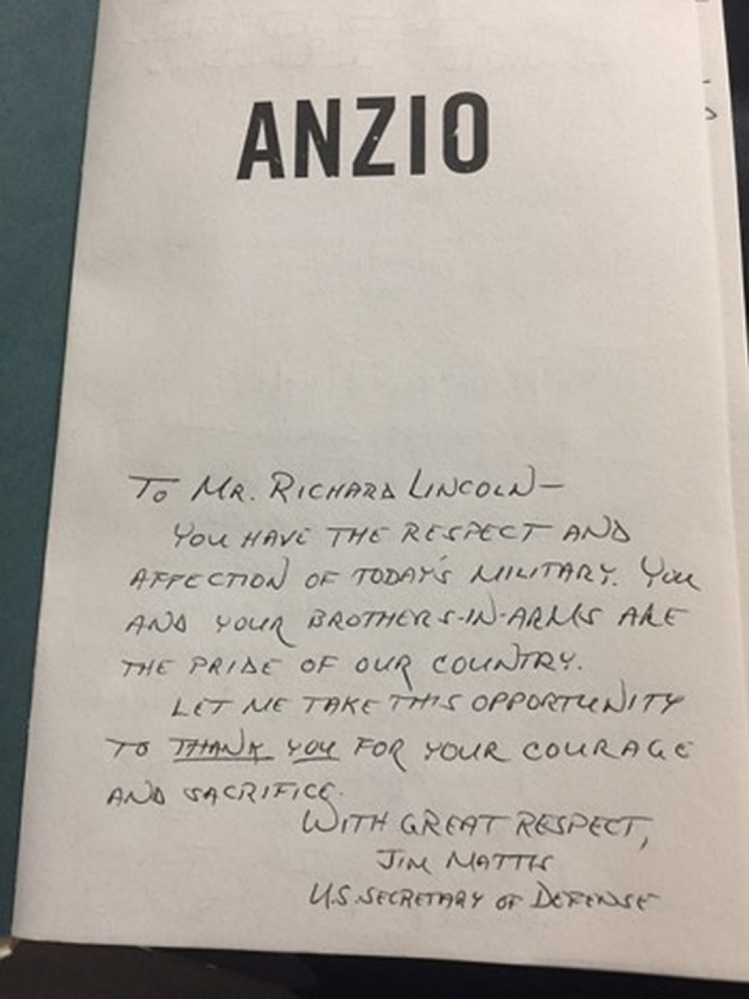 ANZIO
To MR. RICHARD LINCOLN—
YOU HAVE THE RESPECT AND
AFFECTION OF TODAY'S MILITARY. YOU
AND YOUR BROTHERS-IN-ARMS ARE
THE PRIDE OF OUR COUNTRY.
LET ME TAKE THIS OPPORTUNITY
TO THANK YOU FOR YOUR COURAGE
AND SACRIFICE.
WITH GREAT RESPECT,
JIM MATTIS
U.S. SECRETARY OF DEFENSE